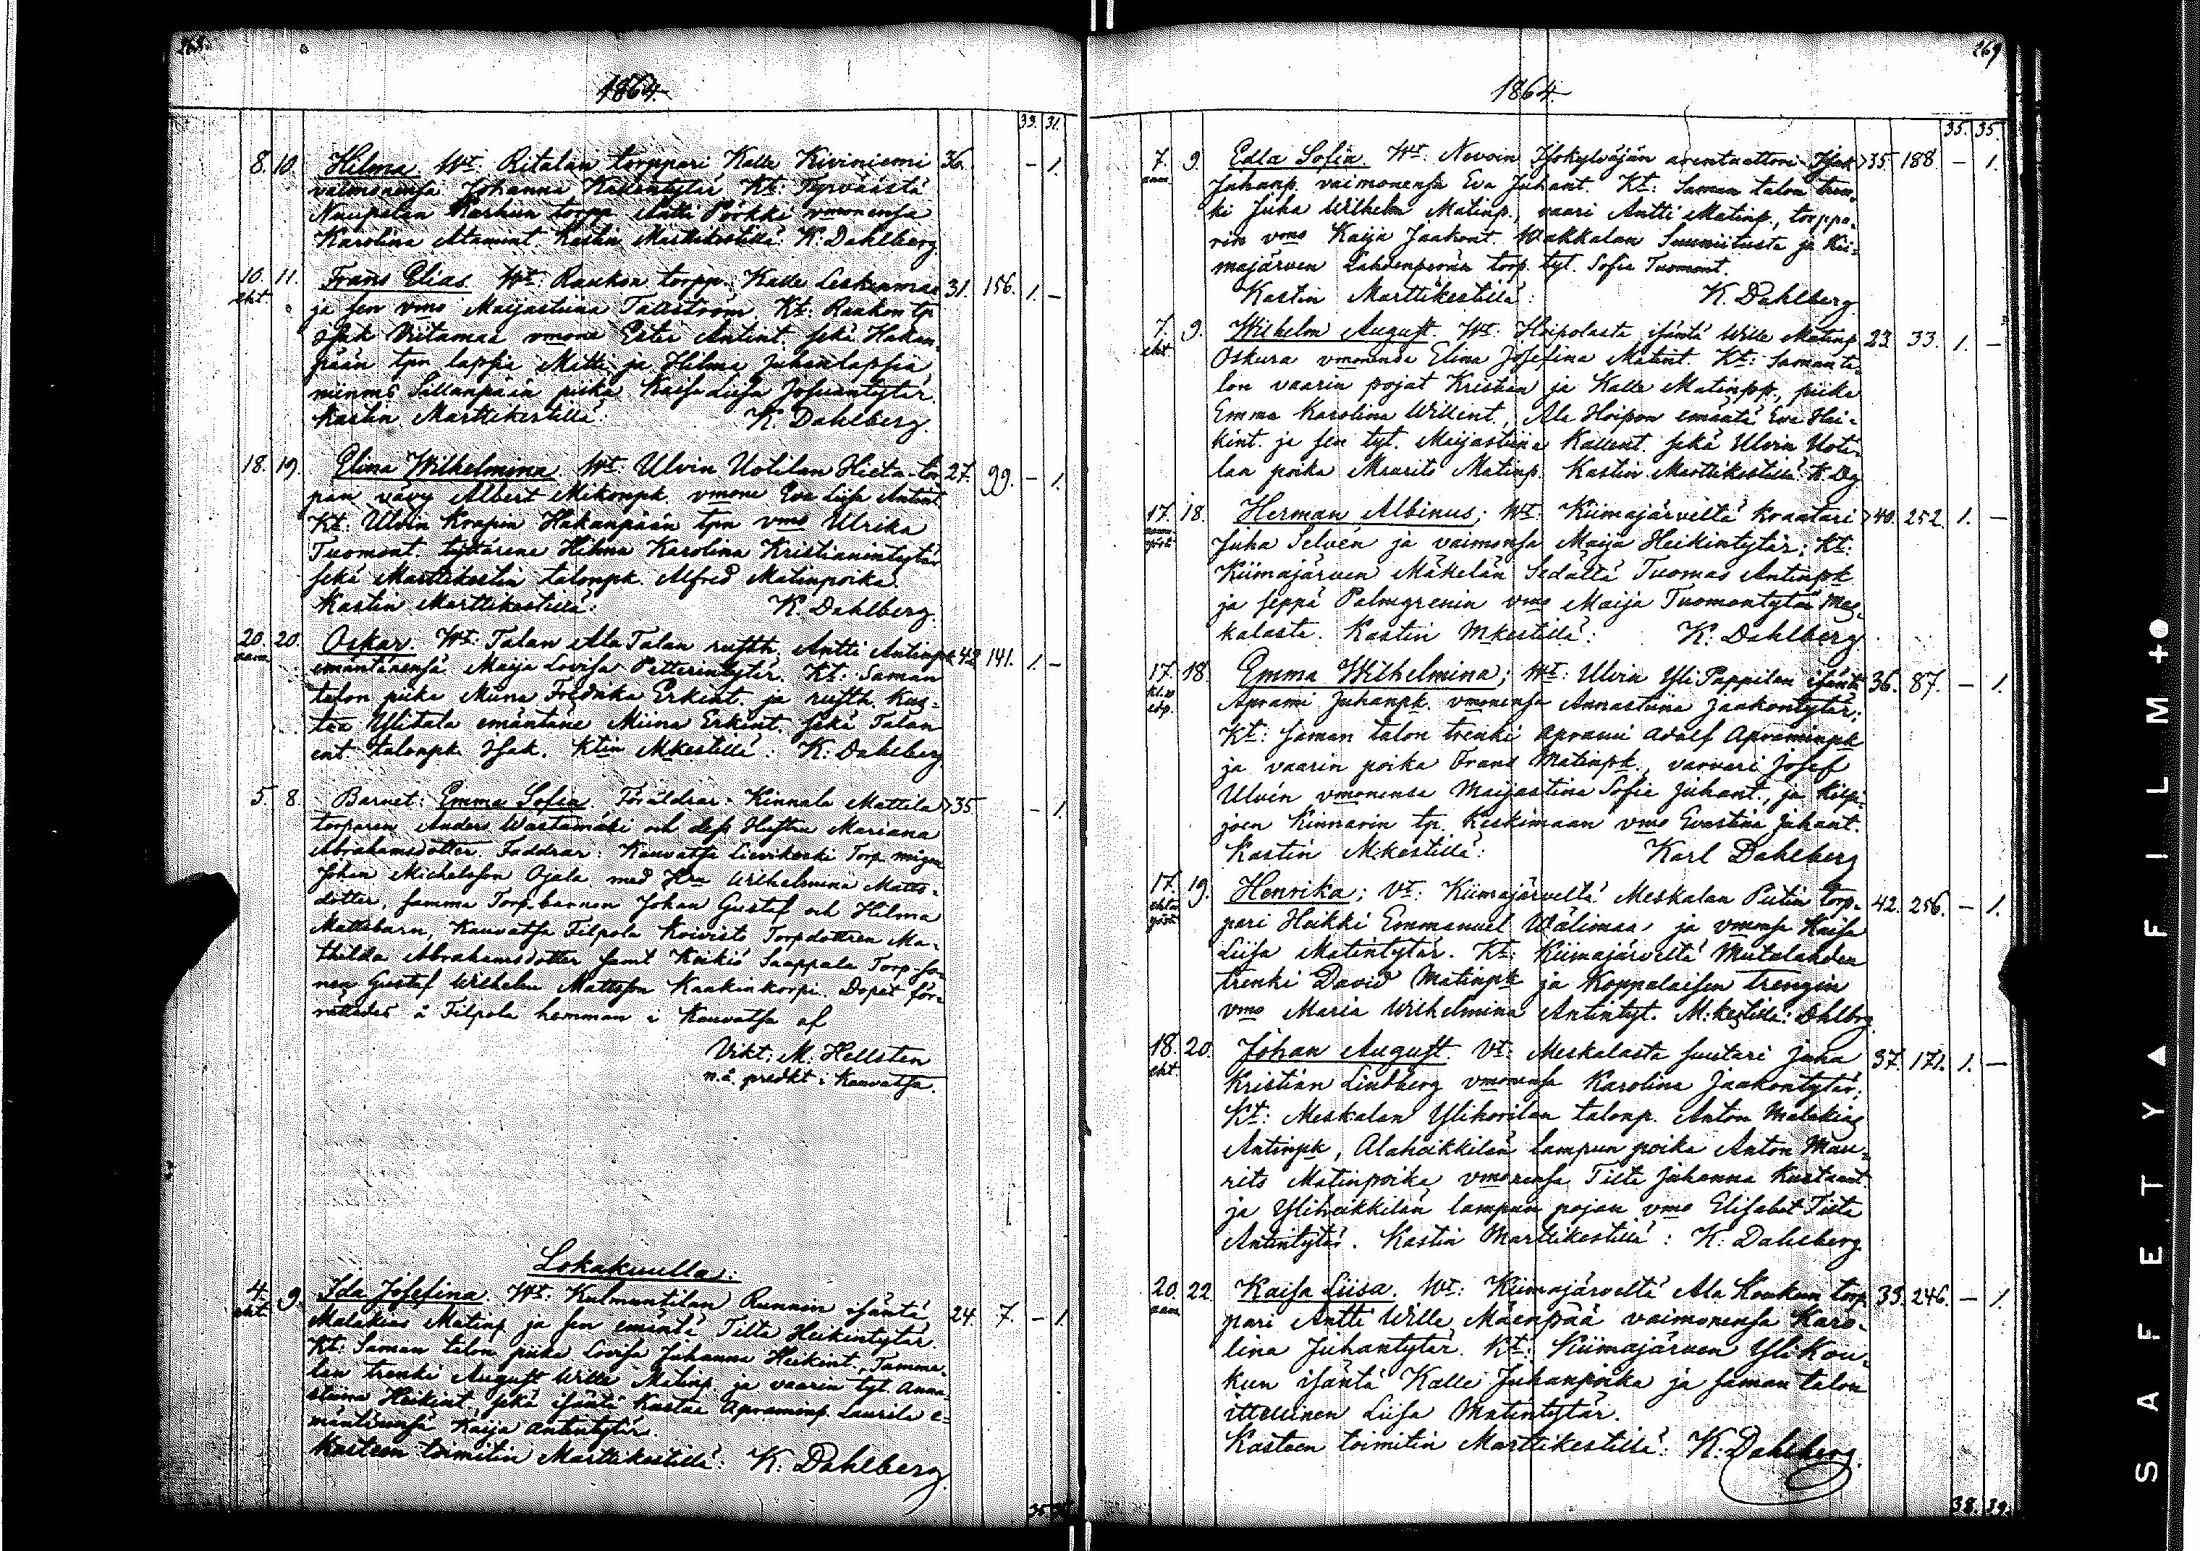 268.
1864.
33. 31.
8. 10. Hilma. Wt. Ritalan torppari Kalle Kiviniemi 36. – 1.
vaimonensa Johanna Kallentytär Kt: Tyrväästä
Nuupalan torpp Antti Pörkki vmonensa
Karolina Kastin Marttikestillä: K. Dahlberg.
10. 11. Frans Elias. Wt: Raukon torpp. Kalle Leskenmaa 31. 156. 1. –
eht.
ja sen vmo Maijastiina Kt: Raukon tp
Isak Viitamaa vmone Ester Antint. sekä Hakan-
pään tpn lappia Matti ja Hilma Juhanlappia,
Sillanpään piika Kaisa Liisa
Kastin Marttikestillä: K. Dahlberg.
18. 19. Elina Wilhelmina. Wt: Ulvin Uotilan Hieta-tor 27. 99. – 1.
pan vävy Albert Mikonpk. vmone Eva Liisa Antint.
Kt: Ulvin Krapin Hakanpään tpn vmo Ulrika
Tuomont. tyttärene Hilma Karolina Kristianintytär
sekä Marttikestin talonpk. Alfred Matinpoika.
Kastin Marttikestillä: K. Dahlberg.
20. 20. Oskar. Wt: Talan Ala Talan rusth. Antti Antinpk 42 141. 1. –
aam.
emäntänensä Maija Lovisa Petterintytär. Kt: Saman
talon piika Miina Fredrika Erkint. ja rusth. Kus-
taa Ylitala emäntäne Miina Erkint. sekä Talan
ent. talonpk Isak. Ktin Mkestillä: K. Dahlberg
5. 8. Barnet: Emma Sofia. Föräldrar: Kinnala Mattila 35 – 1.
torparen Anders Wastamäki och dess Hustru Mariana
Abrahamsdotter. Faddrar: Kauvatsa Lievikoski Torp mågen
Johan Michelsson Ojala med Hru Wilhelmina Matts-
dotter, samma Torp. barnen Johan Gustaf och Hilma
Mattsbarn, Kauvatsa Filpola Koivisto Torpdottren Ma-
thilda Abrahamsdotter samt Keikiö Saappala Torp so-
nen Gustaf Wilhelm Mattsson Kaakinkorpi. Dopet för-
rättades å Filpola hemman i Kauvatsa af
Vikt. M. Hellsten
n.å. predkt i Kauvatsa.
Lokakuulla:
4. 9. Ida Josefina. Wt: Kulmuntilan Runnin isäntä 24. 7. – 1.
eht.
Malakias Matinp ja sen emäntä Tilta Heikintytär.
Kt: Saman talon piika Lovisa Johanna Heikint. Tamma-
lan trenki August Wille Matinp ja vaarin tyt. Anna
stiina Heikint. sekä isäntä Kustaa Apraminp. Laurila e-
mäntänensä Kaija Antintytär.
Kasteen toimitin Marttikestillä: K. Dahlberg
269
1864.
35. 35.
7. 9. Edla Sofia. Wt. Novoin Isokylväjän arentaattori Isak 35. 188 – 1.
aam.
Juhanp. vaimonensa Eva Juhant. Kt: Saman talon tren-
ki Juha Wilhelm Matinp., vaari Antti Matinp., torppa-
rin vmo Kaija Jaakont. Wakkalan ja Kii-
majärven Lahdenperän torp. tyt. Sofia Tuomont.
Kastin Marttikestillä: K. Dahlberg.
7. 9. Wilhelm August. Wt. Hoipolasta isäntä Wille Matinp 23. 33. 1. –
eht
Oskura vmonensa Elina Josefina Matint. Kt: Saman ta-
lon vaarin pojat Kristian ja Kalle Matinpp., piika
Emma Karolina Willent., Ala Hoipon emäntä Eva Hei-
kint. ja sen tyt. Maijastiina Kallent. sekä Ulvin Uoti-
lan poika Maurits Matinp. Kastin Marttikestillä: K. Dg
17. 18. Herman Albinus; Wt: Kiimajärveltä kraatari 40. 252. 1. –
Juha Selven ja vaimonsa Maija Heikintytär; Kt:
Kiimajärven Mäkelän Sedältä Tuomas Antinpk
ja seppä Palmgrenin vmo Maija Tuomontytär Mes-
kalasta. Kastin Mkestillä: K. Dahlberg
17. 18. Emma Wilhelmina; Wt: Ulvin Yli Pappilan isäntä 36. 87. – 1.
Aprami Juhanpk. vmonensa Annastiina Jaakontytär;
Kt: saman talon trenki Aprami Adolf Apraminpk
ja vaarin poika Frans Matinpk., varvari Josef
Ulvén vmonensa Maijastina Sofia Juhant., ja Kilpi-
joen Kinnarin tp. Keskimaan vmo Evastina Juhant.
Kastin M:kestillä: Karl Dahlberg
17. 19. Henrika; Vt: Kiimajärveltä Meskalan Pietin torp- 42. 256. – 1.
pari Heikki Emmanuel Wälimaa ja vmonsa Kaisa
Liisa Matintytär. Kt: Kiimajärveltä Mutalahden
trenki David Matinpk ja Koppalaisen trengin
vmo Maria Wilhelmina Antintyt. M:kestillä: Dhlbrg.
18. 20. Johan August. Vt: Meskalasta suutari Juha 37. 171. 1. –
eht.
Kristian Lindberg vmonensa Karolina Jaakontytär;
Kt: Meskalan Ylihorilan talonp. Anton Malakias
Antinpk, Alaheikkilän lampun poika Anton Mau-
rits Matinpoika vmonensa Tilta Johanna Kustaant.
ja Yliheikkilän lampun pojan vmo Elisabet Tiita
Antintytär. Kastin Marttikestillä: K. Dahlberg
20. 22. Kaisa Liisa. Wt: Kiimajärveltä Ala Koukun torp 35. 246. – 1.
aam.
pari Antti Wille Mäenpää vaimonensa Karo-
lina Juhantytär. Kt: Kiimajärven Yli Kou-
kun isäntä Kalle Juhanpoika ja saman talon
ittellinen Liisa Matintytär.
Kasteen toimitin Marttikestillä: K. Dahlberg.
38. 39.
SAFETY▲FILM